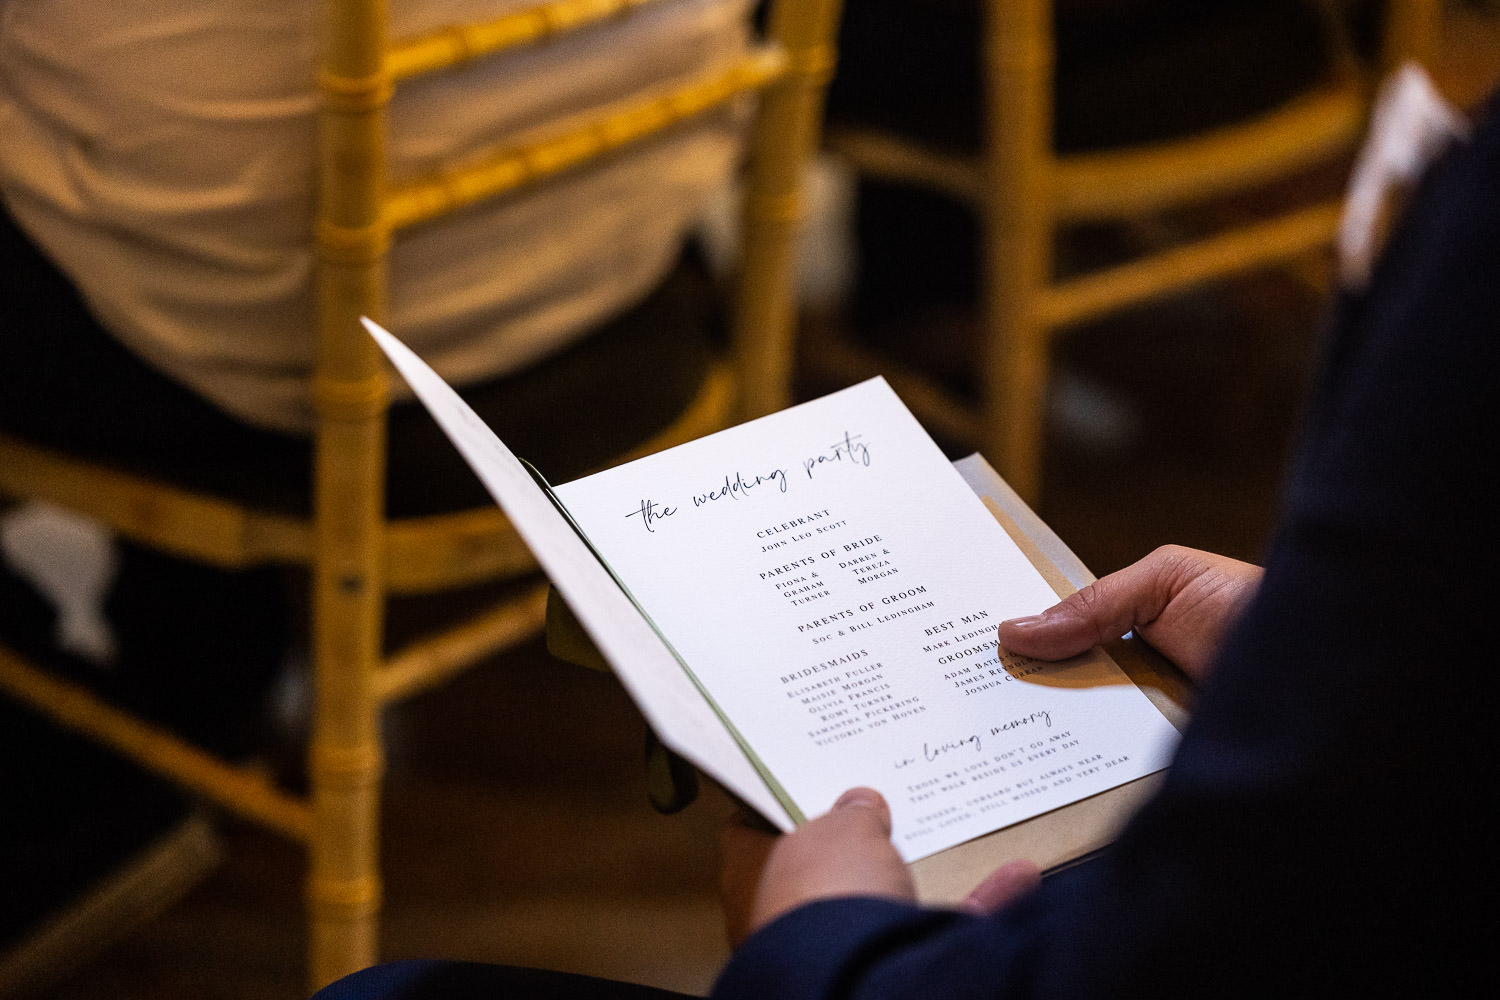 the wedding party
CELEBRANT
JOHN LEO SCOTT
PARENTS OF BRIDE
FIONA &
GRAHAM
TURNER
DARREN &
TEREZA
MORGAN
PARENTS OF GROOM
SOC & BILL LEDINGHAM
BRIDESMAIDS
ELISABETH FULLER
MAISIE MORGAN
OLIVIA FRANCIS
ROMY TURNER
SAMANTHA PICKERING
VICTORIA VON HOVEN
BEST MAN
MARK
ADAM
JAMES
JOSHUA
in loving memory
THOSE WE LOVE DON'T GO AWAY
THEY WALK BESIDE US EVERY DAY
UNSEEN, UNHEARD BUT ALWAYS NEAR
STILL LOVED, STILL MISSED AND VERY DEAR